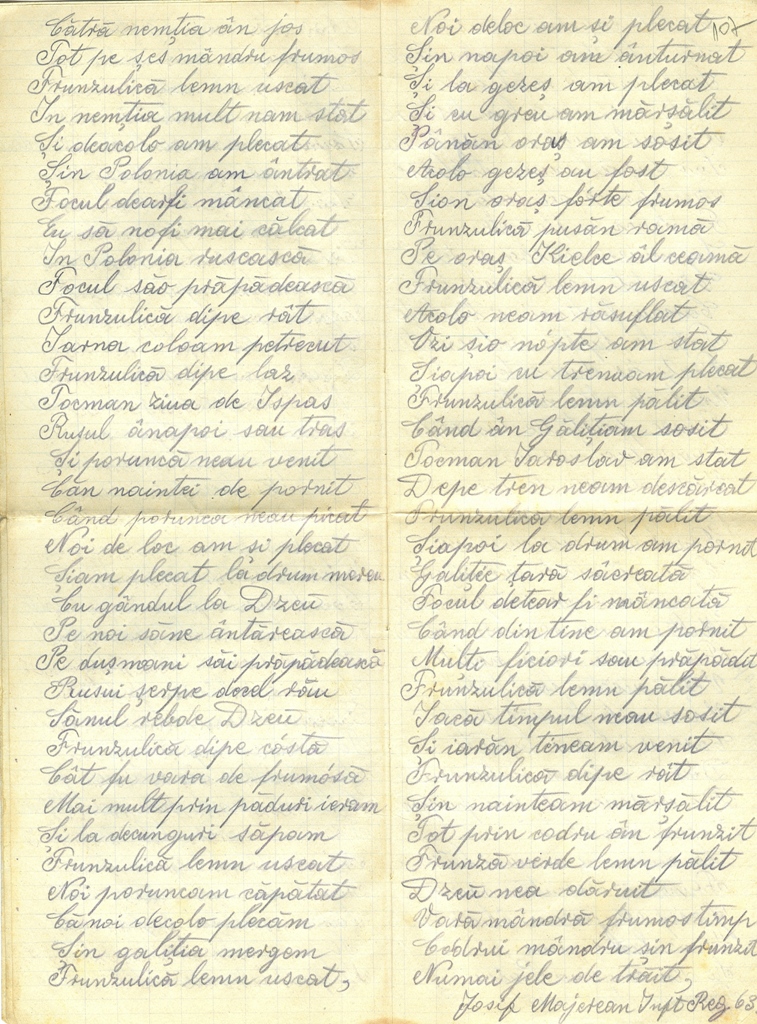 Cătră nemția ân jos
Tot pe șes mândru frumos
Frunzulică lemn uscat
In nemția mult nam stat
Și deacolo am plecat
Șin Polonia am ântrat
Focul dearfi mâncat
Eu să nofi mai călcat
In Polonia ruscască
Focul săo prăpădească
Frunzulică dipe rât
Iarna coloam petrecut
Frunzulică dipe laz
Tocman ziua de Ispas
Rusul ânapoi sau tras
Și poruncă neau venit
Can naintei de pornit
Când porunca neau picat
Noi de loc am și plecat
Șiam plecat la drum mereu
Cu gândul la Dzeu
Pe noi săne ântărească
Pe dușmani săi prăpădească
Rusui șerpe decel rău
Sănul rebde Dzeu
Frunzulică dipe cóstă
Cât fu vara de frumósă
Mai mult prin păduri ieram
Și la decunguri săpam
Frunzulică lemn uscat
Noi poruncam căpătat
Că noi decolo plecăm
Șin galiția mergem
Frunzulică lemn uscat,
Noi deloc am și plecat
107
Șin napoi am ânturnat
Și la gezeș am plecat
Și cu greu am mărsălit
Pănăn oraș am sosit
Acolo gezeș au fost
Sion oraș fórte frumos
Frunzulică pusăn ramă
Pe oraș Kielce âl ceamă
Frunzulică lemn uscat
Acolo neam răsuflat
Ozi sio nópte am stat
Șiapoi cu trenuam plecat
Frunzulică lemn palit
Când ân Galițiam sosit
Tocman Iaroslav am stat
Depe tren neam descărcat
Frunzulică lemn pălit
Șiapoi la drum am pornit
Galițče țară săcreată
Focul detear fi mâncată
Când din tine am pornit
Multi ficiori sau prăpădit
Frunzulică lemn pălit
Iacă timpul neau sosit
Și iarăn tineam venit
Frunzulică dipe rât
Șin nainteam mărsălit
Tot prin codru ân frunzit
Frunză verde lemn pălit
Dzeu nea dăruit
Vară mândră frumos timp
Codrui mândru sin frunzit
Numai jele de trăit,
Josif Majerean Inft Reg. 63